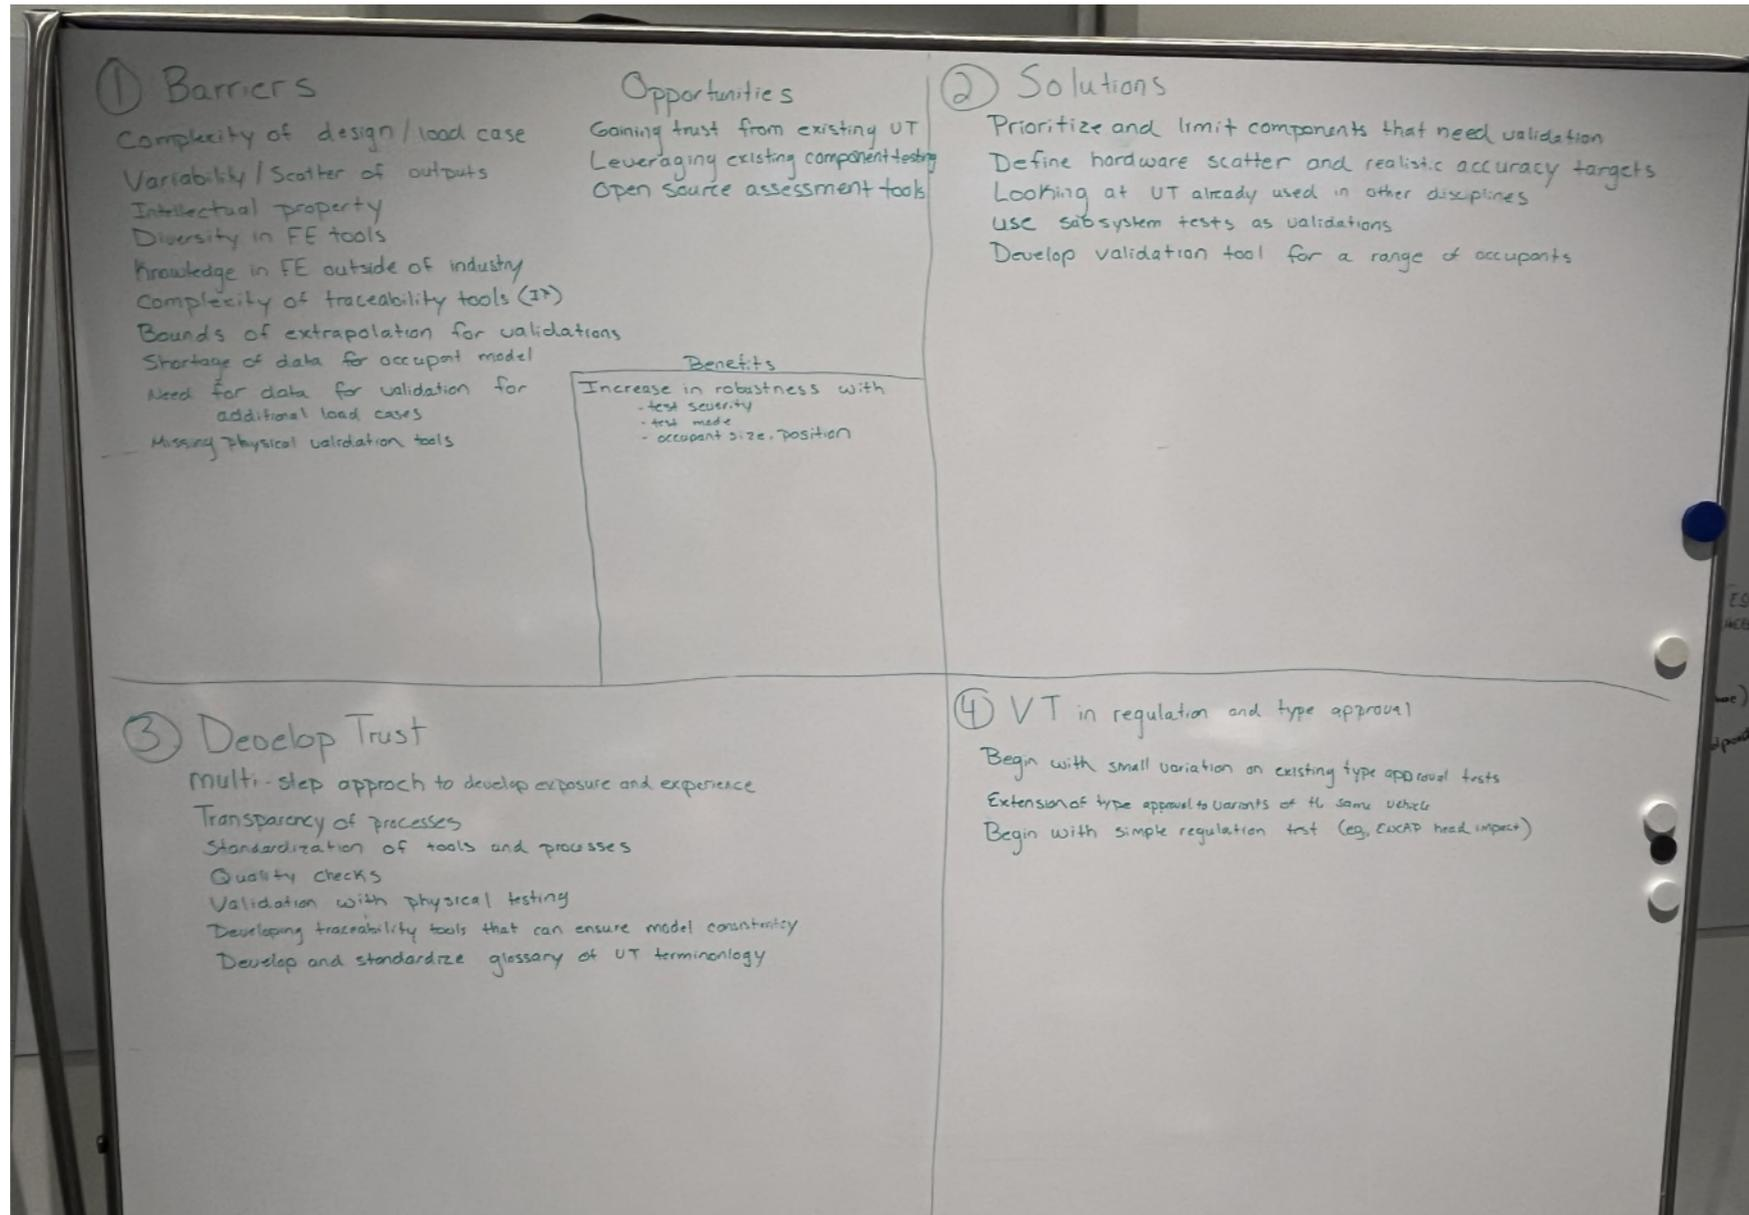 ① Barriers
Complexity of design / load case
Variability / Scatter of outputs
Intellectual property
Diversity in FE tools
Knowledge in FE outside of industry
Complexity of traceability tools
Bounds of extrapolation for validations
Shortage of data for occupant model
Need for data for validation for
additional load cases
Missing physical validation tools
Opportunities
Gaining trust from existing VT
Leveraging existing component testing
Open source assessment tools
Benefits
Increase in robustness with
- test severity
- test mode
- occupant size, position
② Solutions
Prioritize and limit components that need validation
Define hardware scatter and realistic accuracy targets
Looking at VT already used in other disciplines
Use subsystem tests as validations
Develop validation tool for a range of occupants
③ Develop Trust
Multi-step approch to develop exposure and experience
Transparency of processes
Standardization of tools and processes
Quality checks
Validation with physical testing
Developing traceability tools that can ensure model consistentcy
Develop and standardize glossary of VT terminonlogy
④ VT in regulation and type approval
Begin with small variation on existing type approval tests
Extension of type approval to variants of the same vehicle
Begin with simple regulation test (eg, head impact)